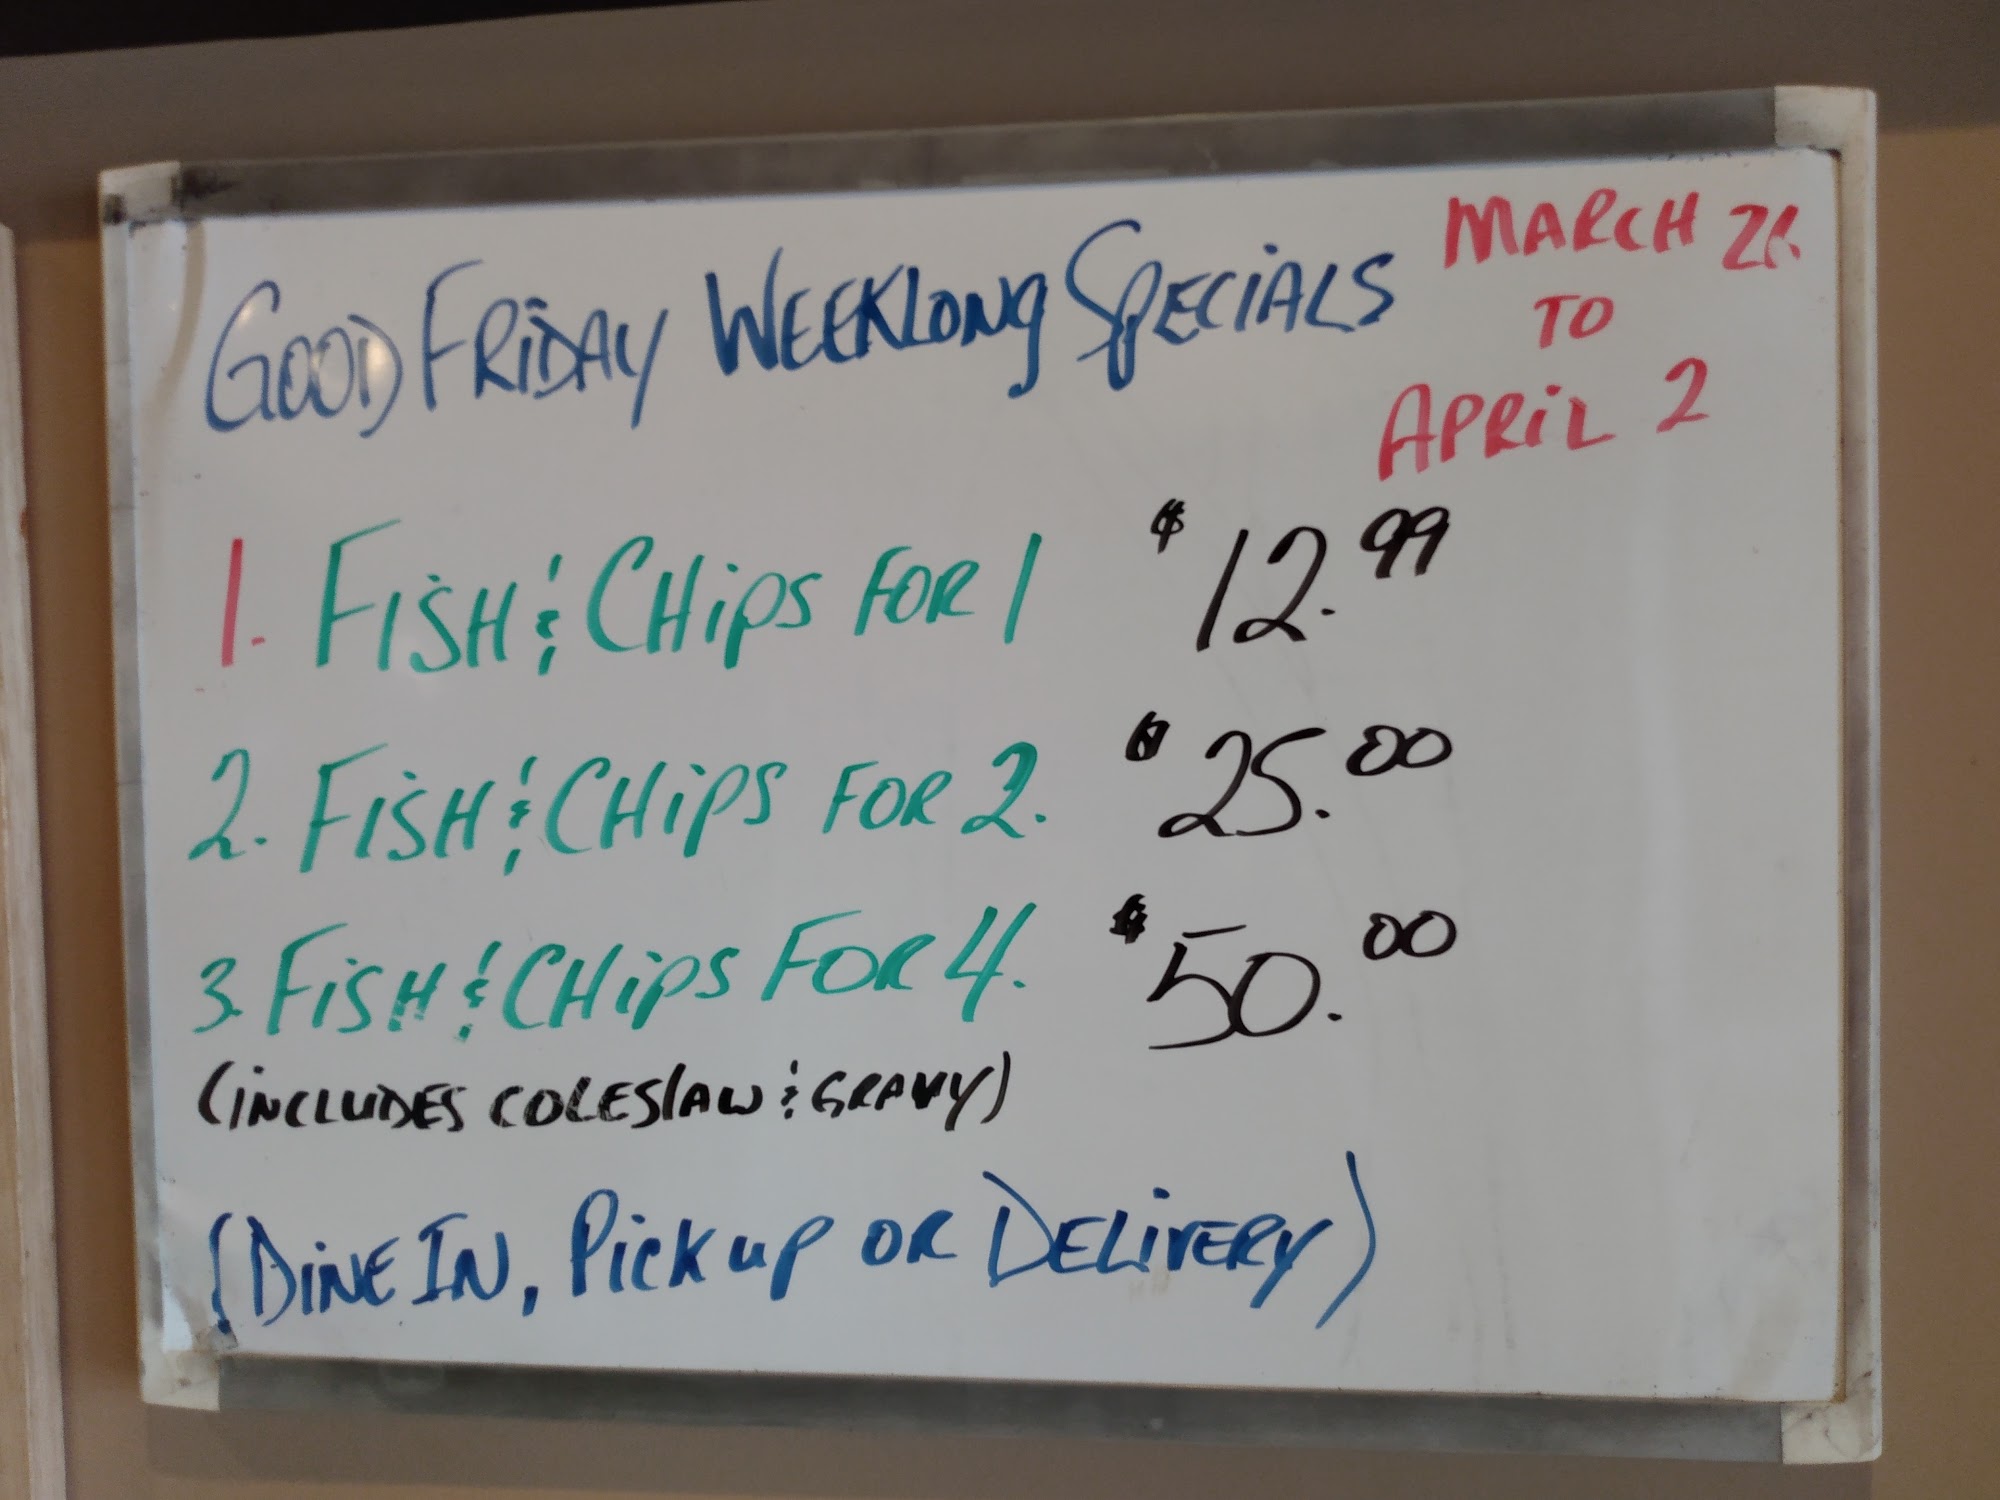 GOOD FRIDAY WEEKLONG SPECIALS
MARCH
TO
APRIL 2
1. FISH & CHIPS FOR 1 $12.99
2. FISH & CHIPS FOR 2. $25.00
3. FISH & CHIPS FOR 4. $50.00
(INCLUDES COLESLAW & GRAVY)
(DINE IN, PICK UP OR DELIVERY)